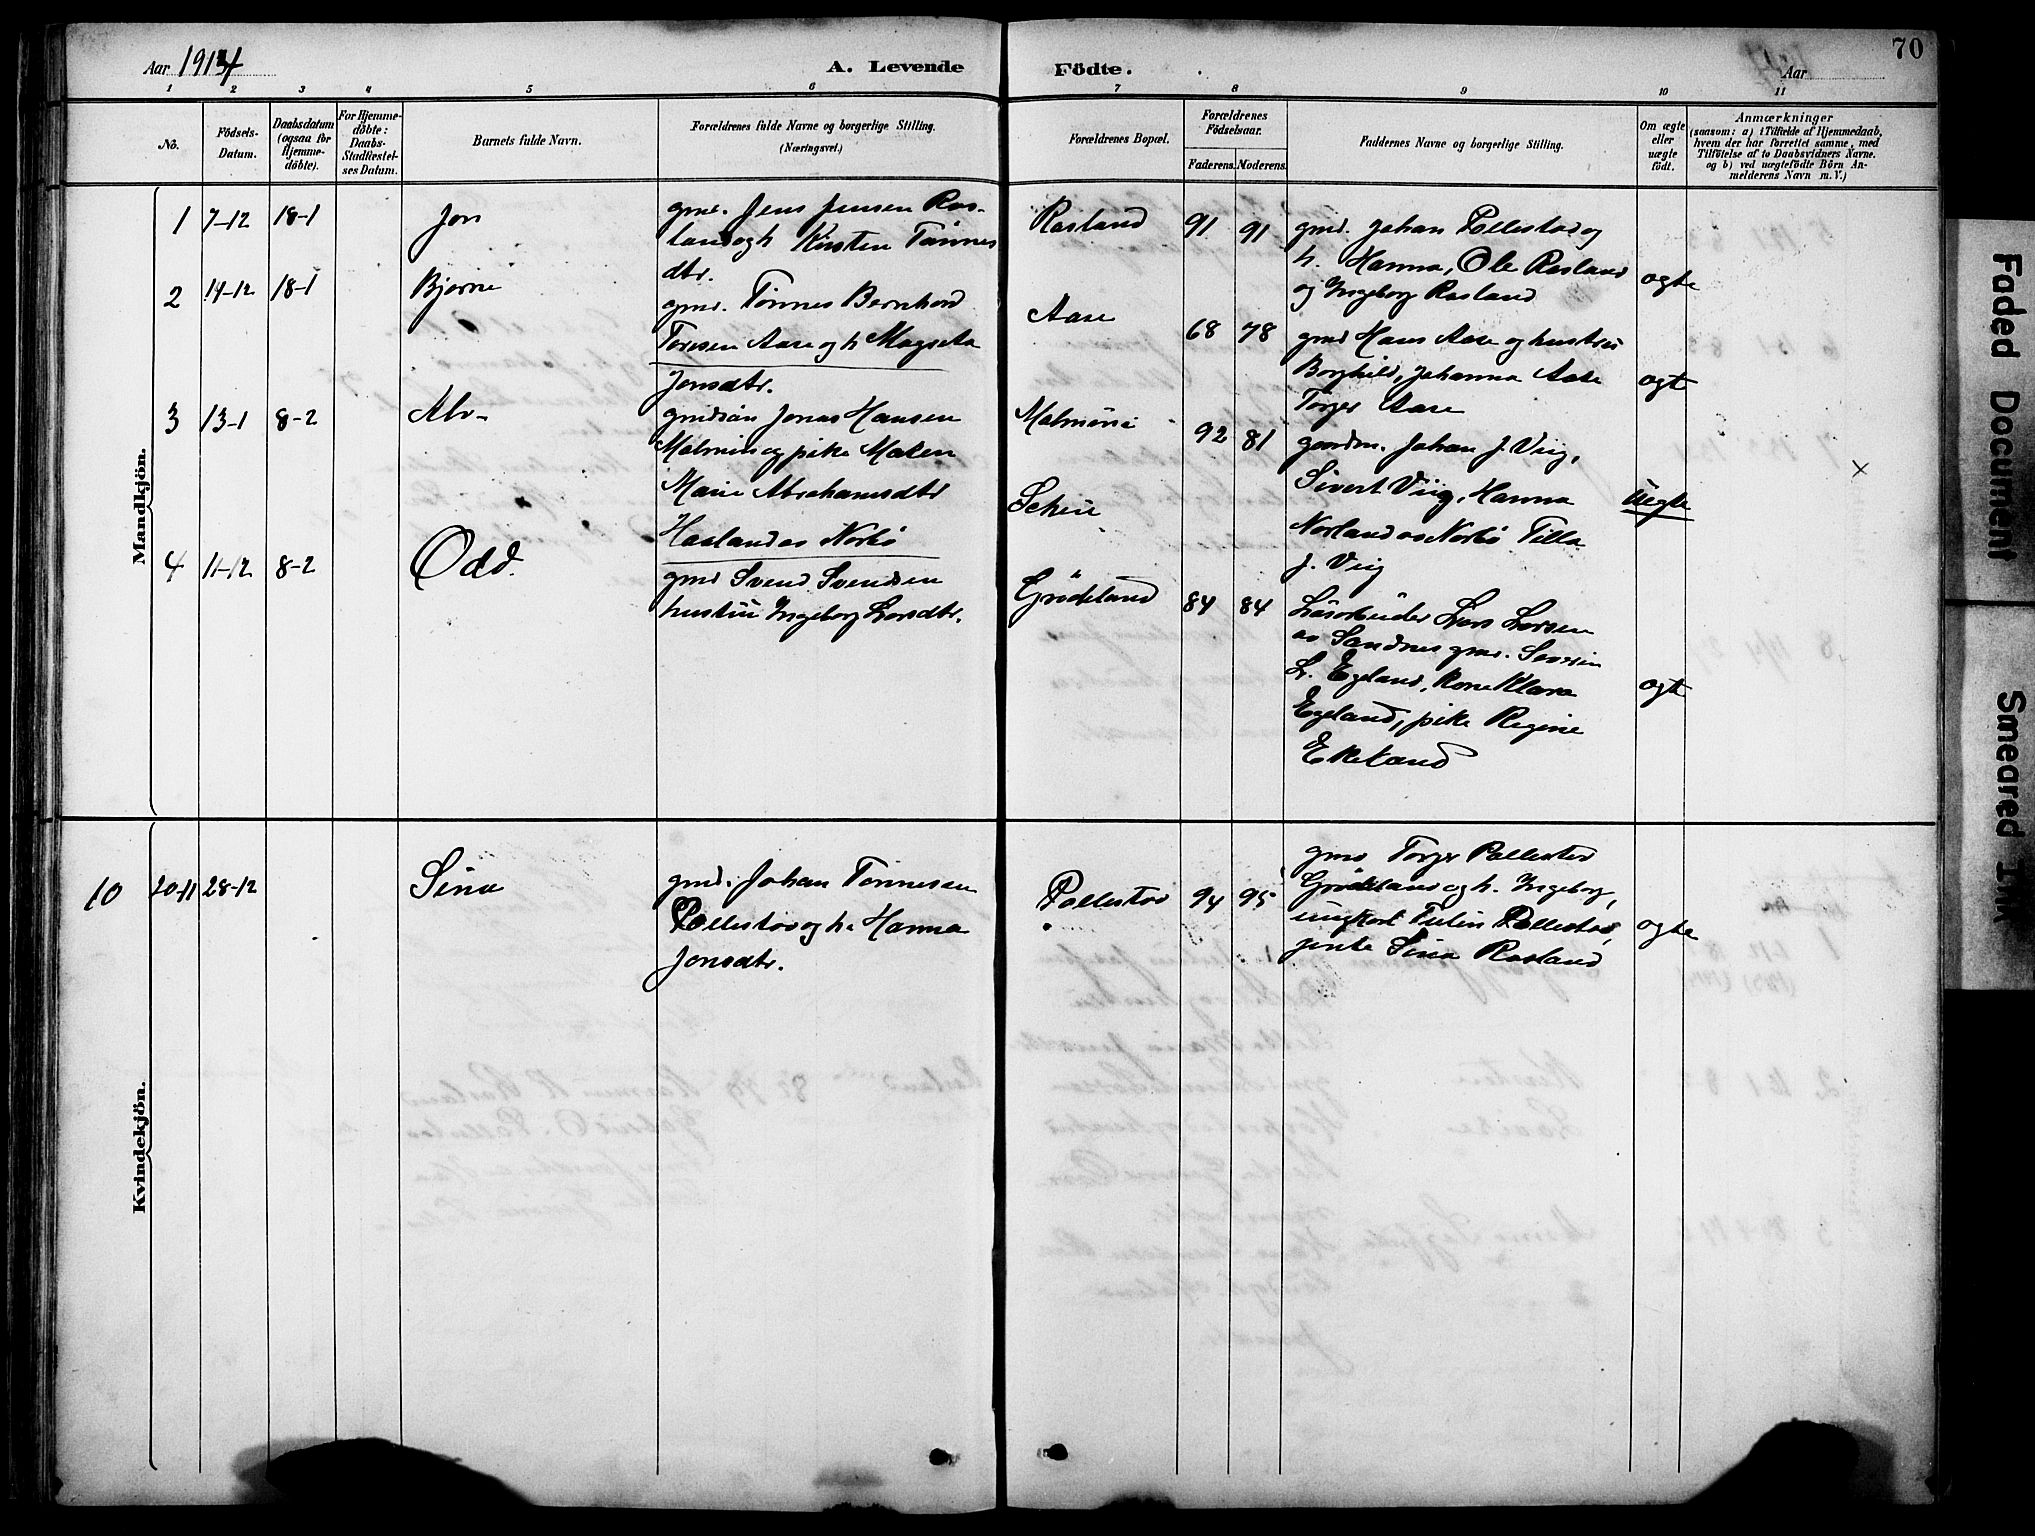 Aar 1914
A. Levende
Födte.
Aar
70
1 2 3 4 5 6 7 8 9 10 11
No.
Födsels-
Datum.
Daabsdatum
(ogsaa for
Hjemme-
döbte).
For Hjemme-
döbte:
Daabs-
Stadfæstel-
ses Datum.
Barnets fulde Navn.
Forældrenes fulde Navne og borgerlige Stilling.
(Næringsvei.)
Forældrenes Bopæl.
Forældrenes
Födselsaar.
Faderens. Moderens.
Faddernes Navne og borgerlige Stilling.
Om ægte
eller
uægte
födt.
Anmærkninger
(saasom: a) i Tilfælde af Hjemmedaab,
hvem der har forrettet samme, med
Tilföielse af to Daabsvidners Navne.
og b) ved uægtefödte Börn An-
melderens Navn m. V.)
Mandkjön.
1 7-12 18-1 Jon
gmd. Jens Jensen Ras-
land og h Kirsten Tönnes
dtr.
Rasland 91 91
gmd. Johan Pollestad og
h. Hanna, Ole Rasland
og Ingeborg Rasland
ægte
2 14-12 18-1 Bjarne
gmd. Tönnes Bernhard
Toresen Aase og h Magreta
Jonsdtr.
Aase 68 78
gmd Hans Aase og hustru
Borghild, Johanna Aase
Torger Aase
ægt
3 13-1 8-2 Alv-
gmdsön Jonas Hansen
Malmin og pike Malen
Marie Abrahamsdtr
Haaland av Norbö
Malmin
Scheie
92 81
gaardm. Johan J. Viig,
Sivert Viig, Hanna
Norland av Norbö Tilla
J. Viig
uægte
x
4 11-12 8-2 Odd.
gmd Svend Svendsen
hustru Ingeborg Larsdtr.
Grödeland 84 84
Lösarbeider Lars Larsen
av Sandnes gmd. Sevrin
L. Egeland, kone Klara
Egeland, pike Regine
Ekeland
ægt
Kvindekjön.
10 20-11 28-12 Sina
gmd. Johan Tönnesen
Pollestad og h. Hanna
Jonsdtr.
Pollestad 94 95
gmd Torger Pollestad
Grödeland og h. Ingeborg,
ungkarl Tulin Pollestad,
jente Sina Rasland
ægte
Faded Document
Smeared Ink